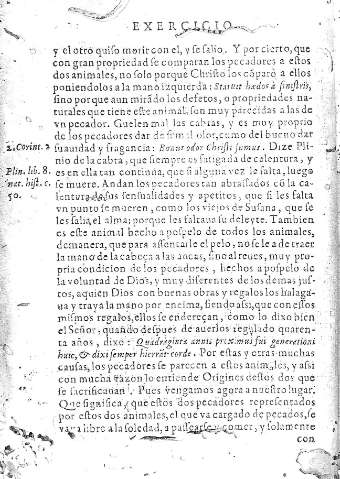 EXERCICIO
y el otro quiso morir con el, y se salio. Y por cierto, que
con gran propriedad se comparan los pecadores a estos
dos animales, no solo porque Christo los cõparò a ellos
poniendolos a la mano izquierda: Statuet hædos à sinistris,
sino porque aun mirãdo los defetos, o propriedades na-
turales que tiene este animal, son muy parecidas a las de
vn pecador. Guelen mal las cabras, y es muy proprio
de los pecadores dar de si mal olor, como del bueno dar
2. Corint. 2
suauidad y fragancia: Bonus odor Christi sumus. Dize Pli-
Plin. lib. 8.
nio de la cabra, que siempre es fatigada de calentura, y
nat. hist. c.
es en ella tan continua, que si alguna vez le falta, luego
50.
se muere. Andan los pecadores tan abrasados cõ la ca-
lentura de sus sensualidades y apetitos, que si les falta
vn punto se mueren, como los viejos de Susana, que se
les salia el alma, porque les faltaua su deleyte. Tambien
es este animal hecho a pospelo de todos los animales,
demanera, que para assentarle el pelo, no se le a de traer
la mano de la cabeça a las ancas, sino al reues, muy pro-
pria condicion de los pecadores, hechos a pospelo de
la voluntad de Dios, y muy diferentes de los demas jus-
tos, a quien Dios con buenas obras y regalos los halaga-
ua y traya la mano por encima, siendo assi, que con essos
mismos regalos, ellos se endereçan, como lo dixo bien
el Señor, quando despues de auerlos regalado quaren-
ta años, dixo: Quadraginta annis proximus fui generationi
huic, & dixi semper hi errant corde. Por estas y otras muchas
causas, los pecadores se parecen a estos animales, y assi
con mucha razon lo entiende Origines destos dos que
se sacrificauan. Pues vengamos agora a nuestro lugar.
Que significa, que estos dos pecadores representados
por estos dos animales, el que va cargado de pecados, se
vaya libre a la soledad, a passearse y comer, y solamente
con